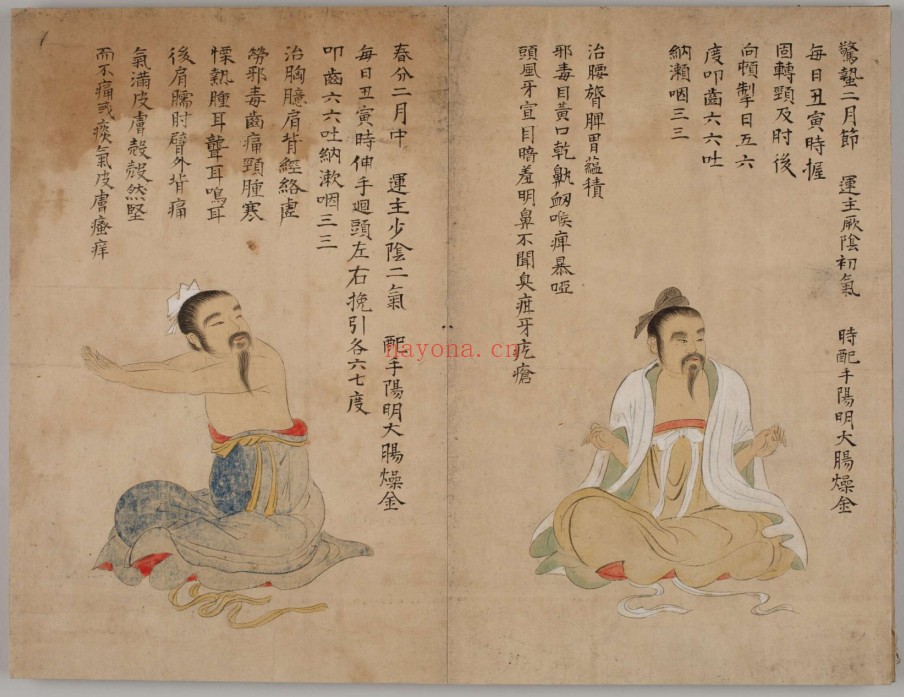 驚蟄二月節 運主厥陰初氣 時配手陽明大腸燥金
每日丑寅時握
固轉頸及肘後
向頓掣日五六
度叩齒六六吐
納漱咽三三
治腰膂脾胃蘊積
邪毒目黃口乾鼽衂喉痺暴啞
頭風牙宣目暗羞明鼻不聞臭疽牙疙瘡
春分二月中 運主少陰二氣 配手陽明大腸燥金
每日丑寅時伸手迴頭左右挽引各六七度
叩齒六六吐納漱咽三三
治胸臆肩背經絡虛
勞邪毒齒痛頸腫寒
慄熱腫耳聾耳鳴耳
後肩臑肘臂外背痛
氣滿皮膚殼殼然堅
而不痛或痰氣皮膚瘙痒
nayona.cn